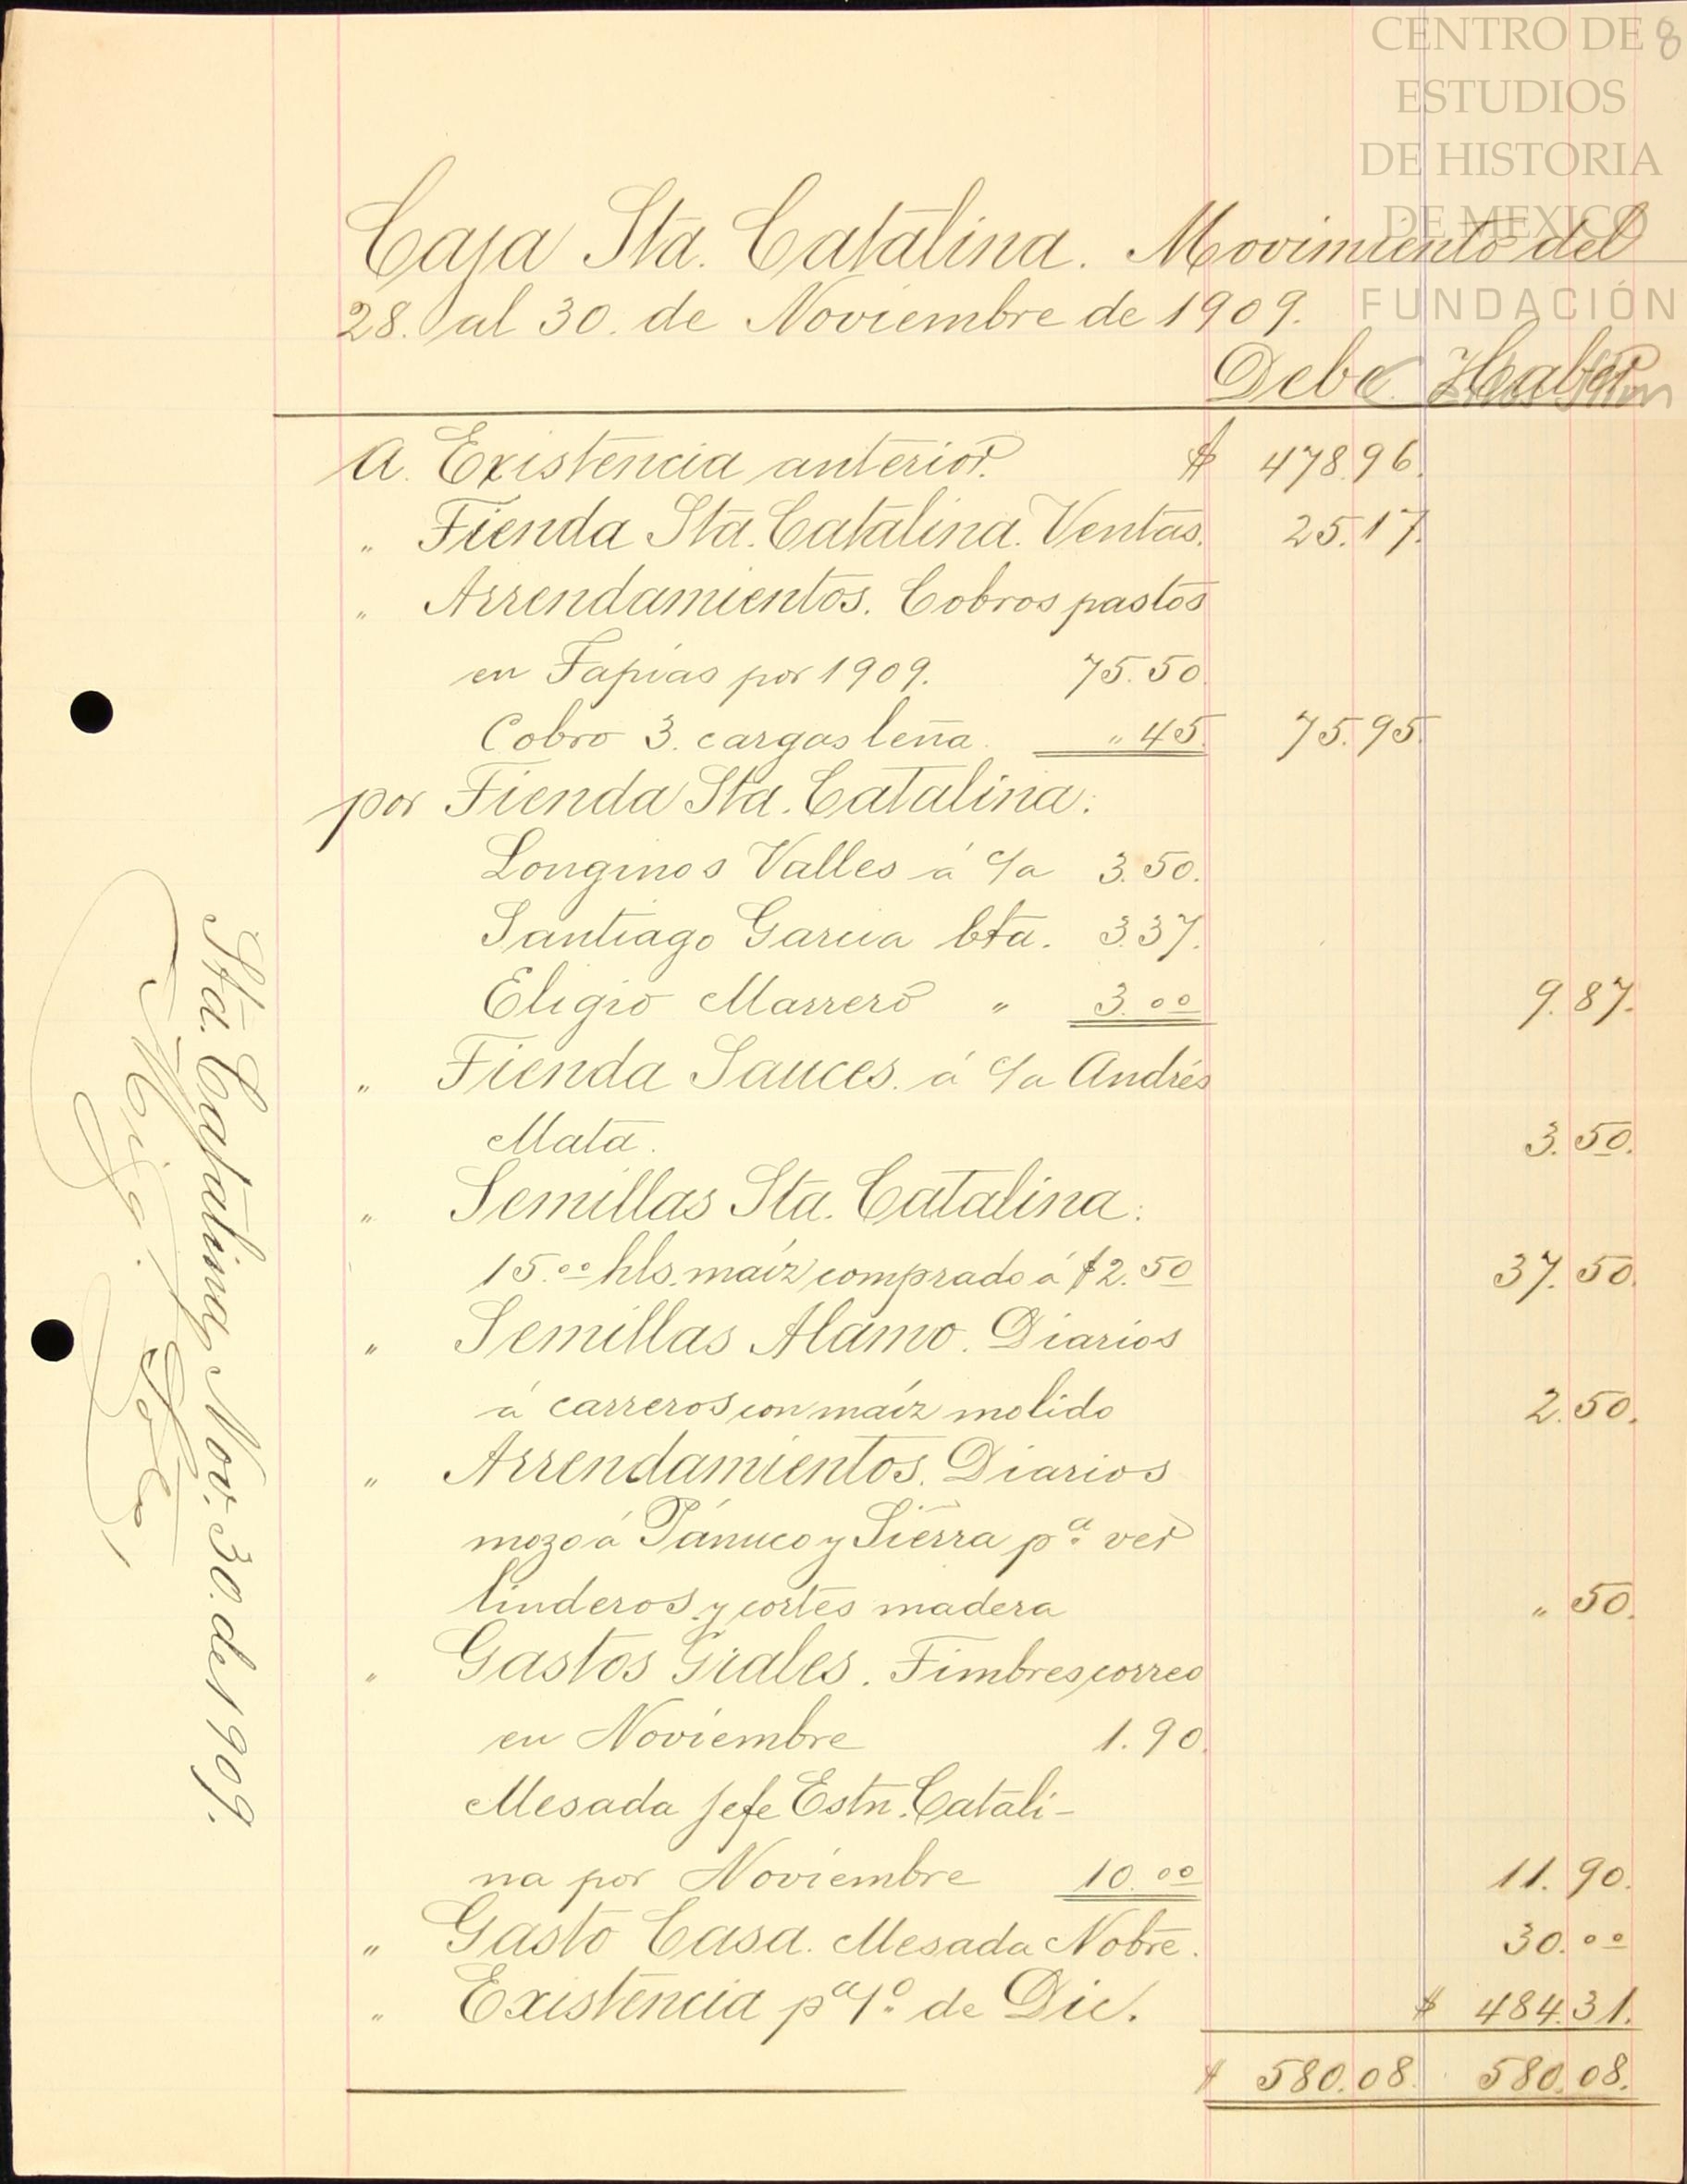 CENTRO DE 8
ESTUDIOS
DE HISTORIA
DE MEXICO
FUNDACIÓN
Caja Sta. Catalina. Movimiento del
28. al 30. de Noviembre de 1909.
Debe. Haber
A. Existencia anterior. $ 478.96.
" Tienda Sta. Catalina. Ventas. 25.17.
" Arrendamientos. Cobros pastos
en Tapias por 1909. 75.50.
Cobro 3. cargas leña. " 45. 75.95.
por Tienda Sta. Catalina:
Longinos Valles á c/a 3.50.
Santiago Garcia bta. 3.37.
Eligio Marrero " 3.00 9.87.
" Tienda Sauces. á c/a Andrés
Mata. 3.50.
" Semillas Sta. Catalina:
15.00 hls. maíz comprado á $2.50 37.50.
" Semillas Alamo. Diarios
á carreros con maíz molido 2.50.
" Arrendamientos. Diarios
mozo á Pánuco y Sierra pa. ver
linderos y cortes madera " 50.
" Gastos Grales. Timbres correo
en Noviembre 1.90.
Mesada Jefe Estn. Catali-
na por Noviembre 10.00 11.90.
" Gasto Casa. Mesada Nobre. 30.00
" Existencia pa. 1o. de Dic. $ 484.31.
$ 580.08. 580.08.
Sta. Catalina, Nov. 30. de 1909.